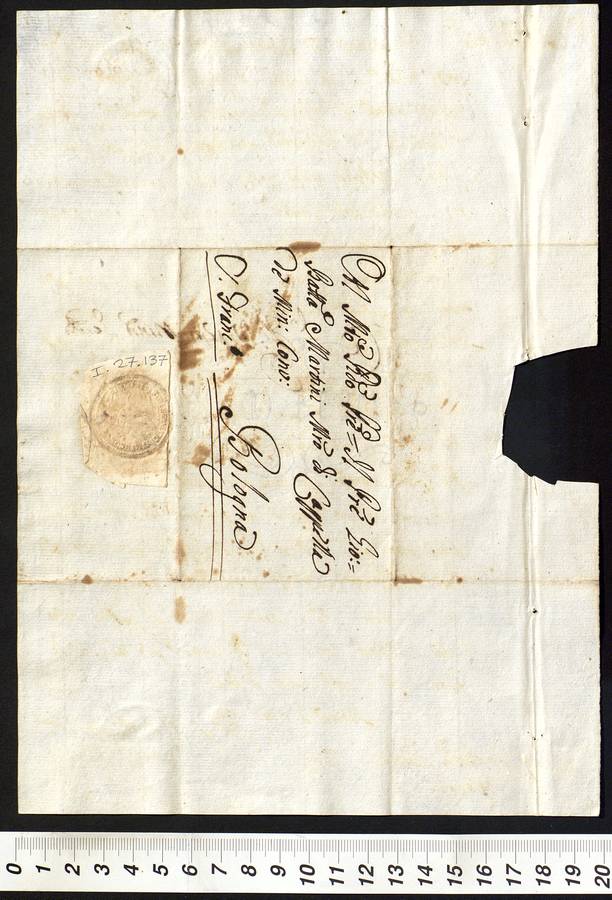 Al Mto Rdo Pre= Pne Il Pre Gio:=
Batta Martini Mro di Cappella
de Min: Conv:
S: Franco Bologna
I. 27.137
0 1 2 3 4 5 6 7 8 9 10 11 12 13 14 15 16 17 18 19 20